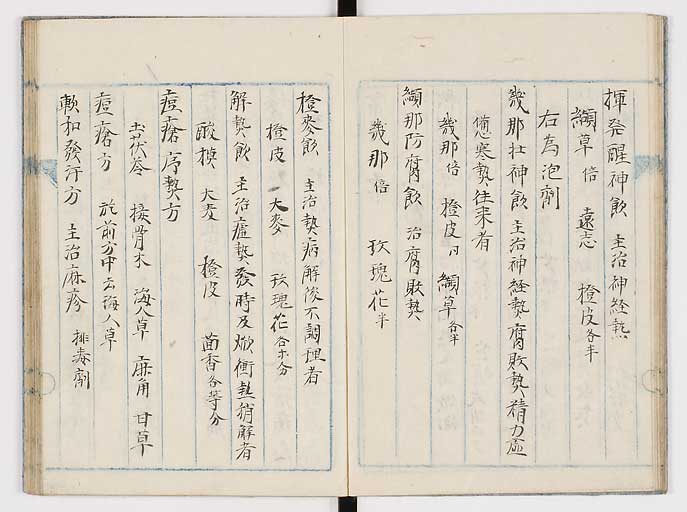 揮発醒神飲 主治神経熱
纈草 倍 遠志 橙皮 各半
右為泡剤
幾那壮神飲 主治神経熱腐敗熱精力虚
憊寒熱往来者
幾那 倍 橙皮 纈草 各半
纈那防腐飲 治腐敗熱
幾那 倍 玫瑰花 半
橙麥飲 主治熱病解後不調理者
橙皮 大麥 玫瑰花
解熱飲 主治瘧熱發時及焮衝熱稍解者
酸模 大麦 橙皮 茴香 各等分
痘瘡序熱方
接骨木 海人草 鹿角 甘草
痘瘡方 於前方中去海人草
軟和發汗方 主治麻疹 排毒剤